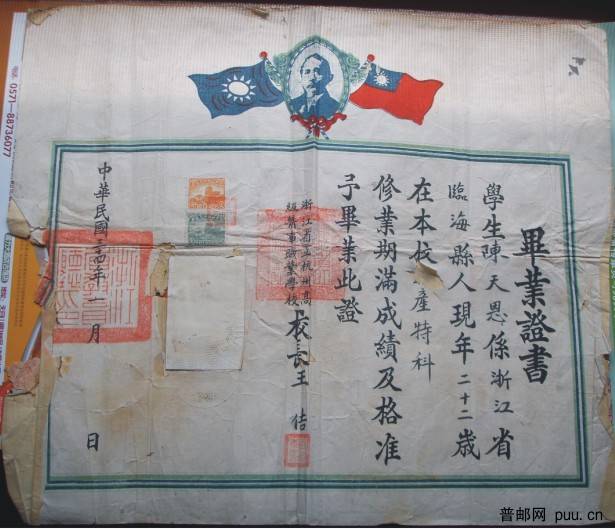 畢業證書
學生陳天恩係浙江省
臨海縣人現年二十二歲
在本校 產特科
修業期滿成績及格准
予畢業此證
浙江省立杭州高
級醫事職業學校
校長王佶
中華民國 年一月 日
0571-88736077
普邮网 puu.cn